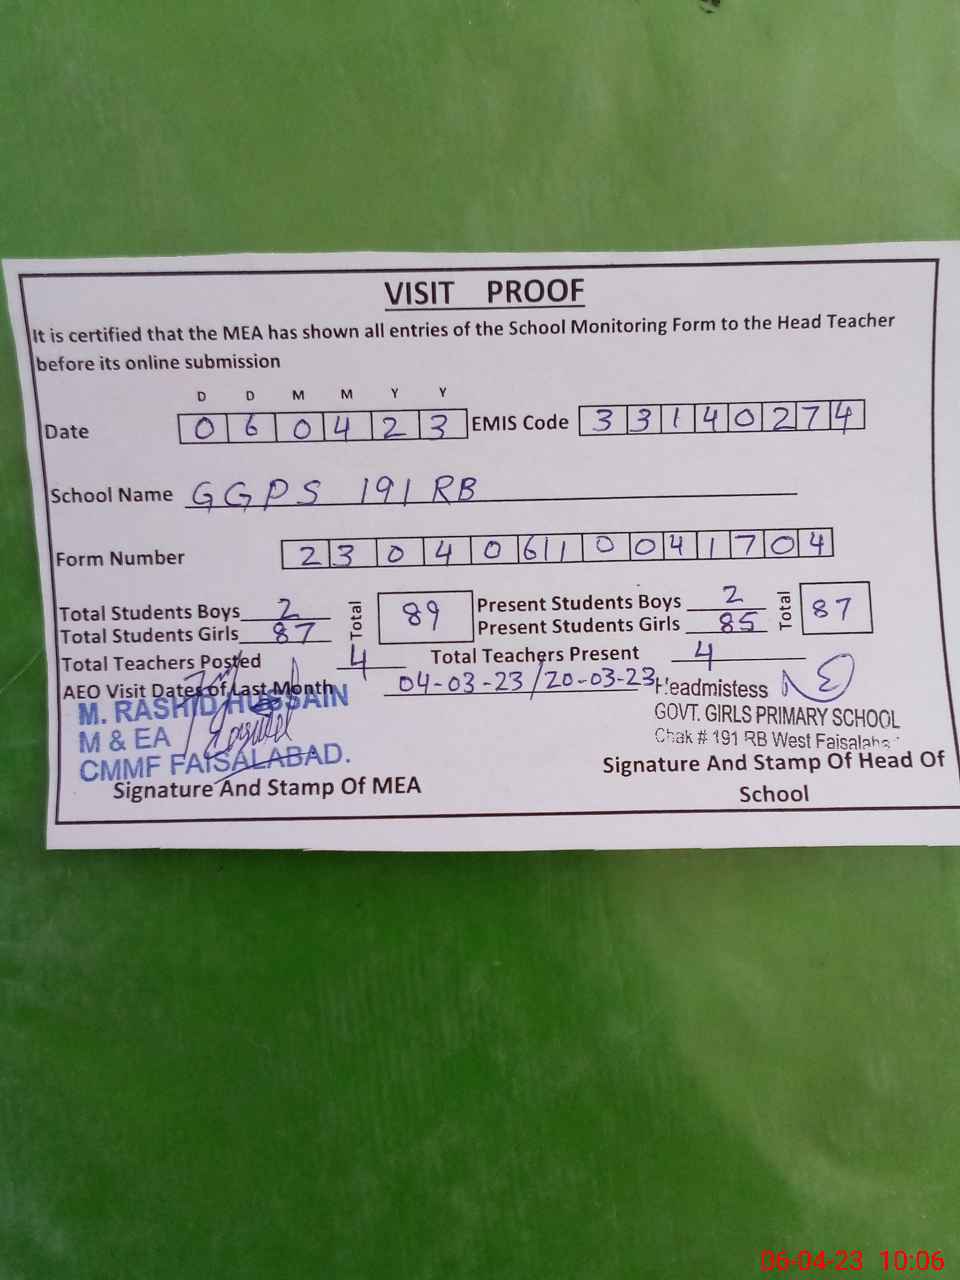 VISIT PROOF
It is certified that the MEA has shown all entries of the School Monitoring Form to the Head Teacher
before its online submission
D D M M Y Y
Date 0 6 0 4 2 3 EMIS Code 3 3 1 4 0 2 7 4
School Name GGPS 191 RB
Form Number 2 3 0 4 0 6 1 1 0 0 4 1 7 0 4
Total Students Boys 2 Total 89 Present Students Boys 2 Total 87
Total Students Girls 87 Present Students Girls 85
Total Teachers Posted 4 Total Teachers Present 4
AEO Visit Dates of Last Month 04-03-23/20-03-23
M. RASHID HUSSAIN
M & EA
CMMF FAISALABAD.
Signature And Stamp Of MEA
Headmistess
GOVT. GIRLS PRIMARY SCHOOL
Chak # 191 RB West
Signature And Stamp Of Head Of
School
06-04-23 10:06